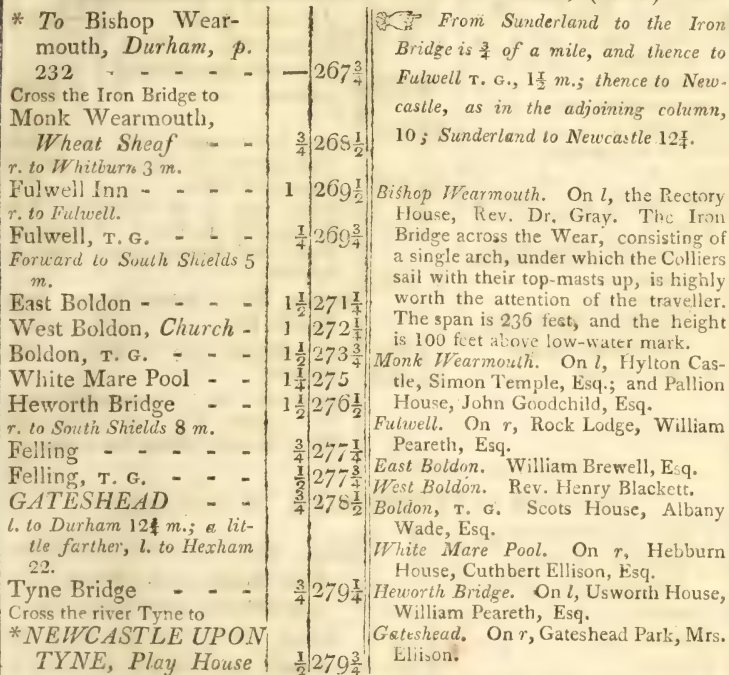 * To Bishop Wear-
mouth, Durham, p.
232 - - - - - — 267¾
Cross the Iron Bridge to
Monk Wearmouth,
Wheat Sheaf - - ¾ 268½
r. to Whitburn 3 m.
Fulwell Inn - - - - 1 269½
r. to Fulwell.
Fulwell, T. G. - - - ¼ 269¾
Forward to South Shields 5
m.
East Boldon - - - - 1½ 271¼
West Boldon, Church - 1 272¼
Boldon, T. G. - - - 1½ 273¾
White Mare Pool - - 1¼ 275
Heworth Bridge - - 1½ 276½
r. to South Shields 8 m.
Felling - - - - - ¾ 277¼
Felling, T. G. - - - ½ 277¾
GATESHEAD - - ¾ 278½
l. to Durham 12¾ m.; a lit-
tle farther, l. to Hexham
22.
Tyne Bridge - - - ¾ 279¼
Cross the river Tyne to
*NEWCASTLE UPON
TYNE, Play House ½ 279¾
☞ From Sunderland to the Iron
Bridge is ¾ of a mile, and thence to
Fulwell T. G., 1½ m.; thence to New-
castle, as in the adjoining column,
10; Sunderland to Newcastle 12¼.
Bishop Wearmouth. On l, the Rectory
House, Rev. Dr. Gray. The Iron
Bridge across the Wear, consisting of
a single arch, under which the Colliers
sail with their top-masts up, is highly
worth the attention of the traveller.
The span is 236 feet, and the height
is 100 feet above low-water mark.
Monk Wearmouth. On l, Hylton Cas-
tle, Simon Temple, Esq.; and Pallion
House, John Goodchild, Esq.
Fulwell. On r, Rock Lodge, William
Peareth, Esq.
East Boldon. William Brewell, Esq.
West Boldon. Rev. Henry Blackett.
Boldon, T. G. Scots House, Albany
Wade, Esq.
White Mare Pool. On r, Hebburn
House, Cuthbert Ellison, Esq.
Heworth Bridge. On l, Usworth House,
William Peareth, Esq.
Gateshead. On r, Gateshead Park, Mrs.
Ellison.